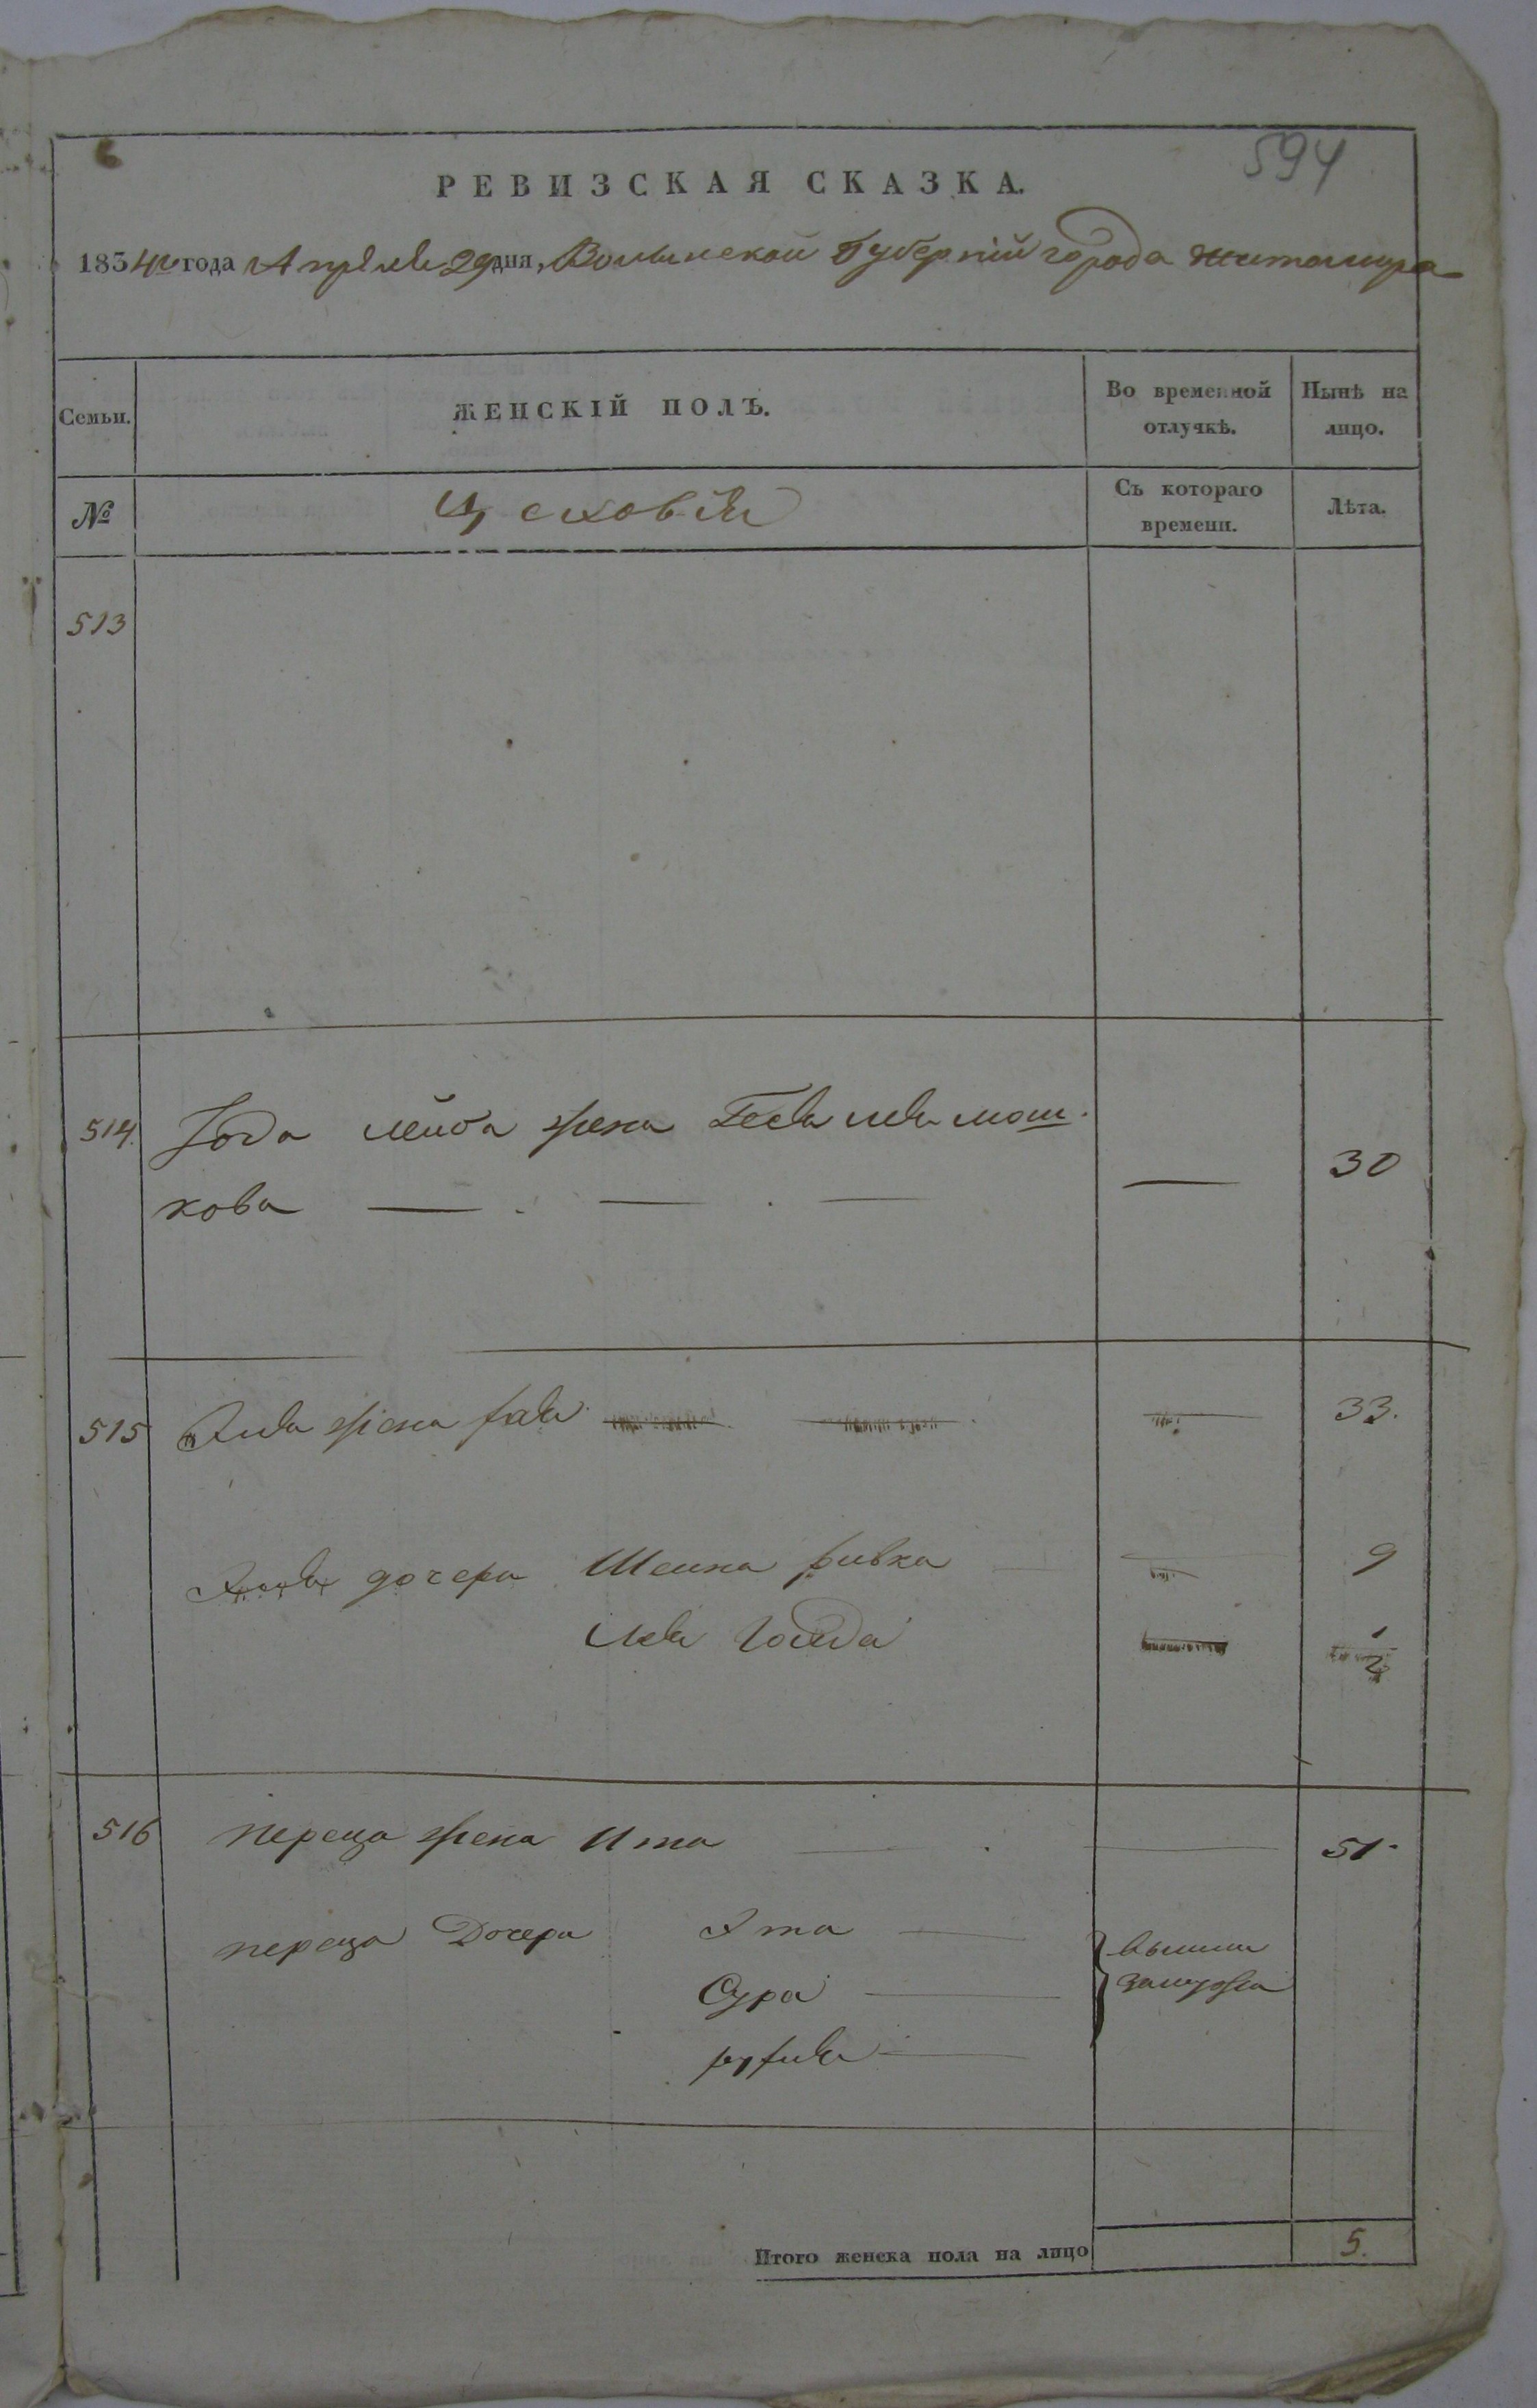 594
РЕВИЗСКАЯ СКАЗКА.
1834го года Апреля 29 дня, Волынской Губерніи города Житомира
Семьи.
ЖЕНСКІЙ ПОЛЪ.
Во временной отлучкѣ.
Нынѣ на лицо.
№
Цеховій
Съ котораго времени.
Лѣта.
513
514. лейба жена мош-
кова — — — — 30
515 жена 33.
дочери Шейна ривка 9
Голда 1/2
516 переца жена Ита — — 51
переца Дочери Ита —
Сура — вышли
замужъ
Итого женска пола на лицо 5.